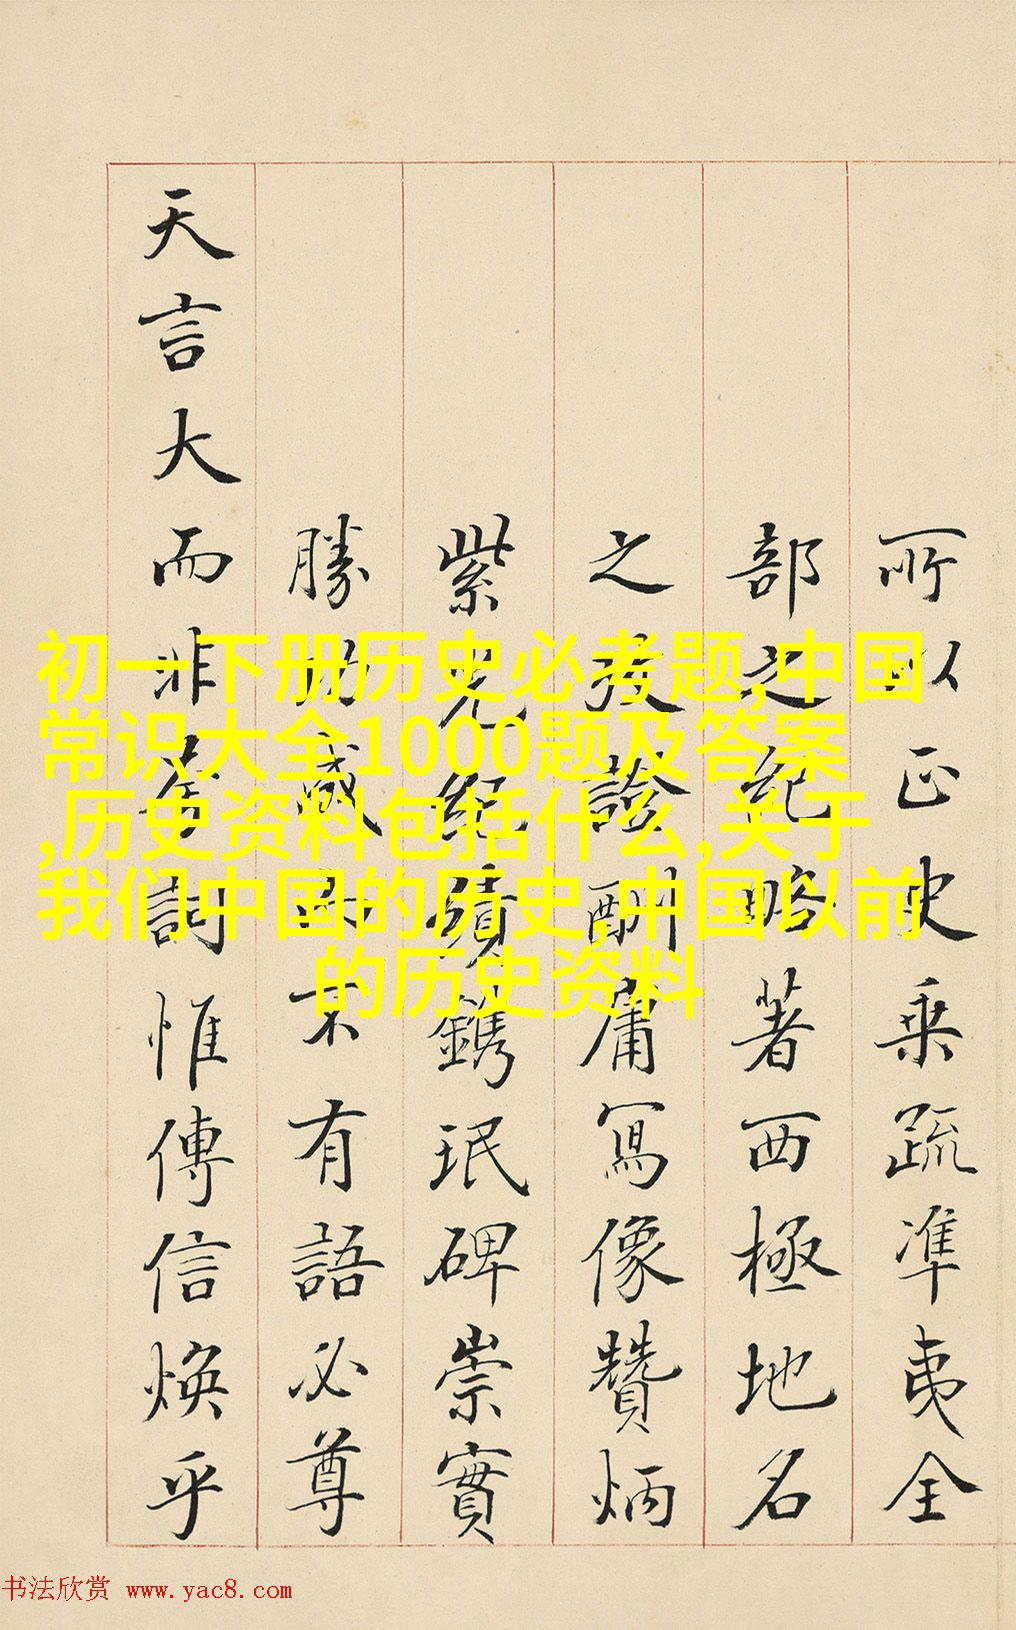 所以正史乘疏凖夷全
部之紀略著西極地名
之證酬庸寫像贊炳
紫光紀績鐫珉碑崇實
勝有語必尊
天言大而非詞惟傳信煥乎
初一下册历史必考题,中国
常识大全1000题及答案
,历史资料包括什么,关于
我们中国的历史,中国以前
的历史资料
书法欣赏 www.yac8.com